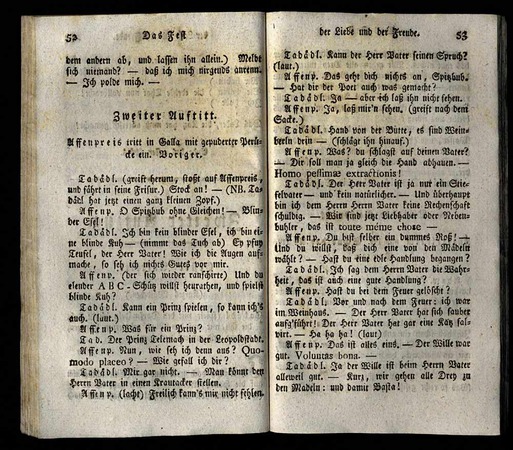 52 Das Fest
dem andern ab, und lassen ihn allein.) Meldt
sich niemand? — daß ich mich nirgends anrenn.
— Ich polde mich. —
Zweiter Auftritt.
Affenpreis tritt in Galla mit gepuderter Perü-
cke ein. Voriger.
Tabädl. (greift herum, stoßt auf Affenpreis,
und fährt in seine Frisur.) Stock an! — (NB. Ta-
bädl hat jetzt einen ganz kleinen Zopf.)
Affenp. O Spitzbub ohne Gleichen! — Blin-
der Esel!
Tabädl. Ich bin kein blinder Esel, ich bin ei-
ne blinde Kuh — (nimmt das Tuch ab) Ey pfuy
Teufel, der Herr Vater! Wie ich die Augen auf-
mache, so seh ich nichts Gutes vor mir.
Affenp. (der sich wieder ranschirt) Und du
elender ABC-Schütz willst heurathen, und spielst
blinde Kuh?
Tabädl. Kann ein Prinz spielen, so kann ich's
auch. (laut.)
Affenp. Was für ein Prinz?
Tab. Der Prinz Telemach in der Leopoldstadt.
Affenp. Nun, wie seh ich denn aus? Quo-
modo placeo? — Wie gefall ich dir?
Tabädl. Mir gar nicht. — Man könnt den
Herrn Vater in einen Krautacker stellen.
Affenp. (lacht) Freilich kann's mir nicht fehlen.
der Liebe und der Freude. 53
Tabädl. Kann der Herr Vater seinen Spruch?
(laut.)
Affenp. Das geht dich nichts an, Spitzbub.
— Hat dir der Poet auch was gemacht?
Tabädl. Ja — aber ich laß ihn nicht sehen.
Affenp. Ja, laß mir'n sehen. (greift nach dem
Sacke.)
Tabädl. Hand von der Butte, es sind Wein-
beeln drin — (schlägt ihn hinauf.)
Affenp. Was? du schlagst auf deinen Vater?
— Dir soll man ja gleich die Hand abhauen. —
Homo pessimæ extractionis!
Tabädl. Der Herr Vater ist ja nur ein Stie-
felvater — und kein natürlicher. — Und überhaupt
bin ich dem Herrn Vater keine Rechenschaft
schuldig. — Wir sind jetzt Liebhaber oder Neben-
buhler, das ist toute même chose —
Affenp. Du bist selber ein dummes Roß! —
Und du willst, daß dich eine von den Mädeln
wählt? — Hast du eine edle Handlung begangen?
Tabädl. Ich sag dem Herrn Vater die Wahr-
heit, das ist auch eine gute Handlung?
Affenp. Hast du bei dem Feuer gelöscht?
Tabädl. Vor und nach dem Feuer: ich war
im Weinhaus. — Der Herr Vater hat sich sauber
aufg'führt! Der Herr Vater hat gar eine Katz sal-
virt. — Ha ha ha! (laut)
Affenp. Das ist alles eins. — Der Wille war
gut. Voluntas bona. —
Tabädl. Ja der Wille ist beim Herrn Vater
alleweil gut. — Kurz, wir gehen alle Drey zu
den Madeln: und damit Basta!